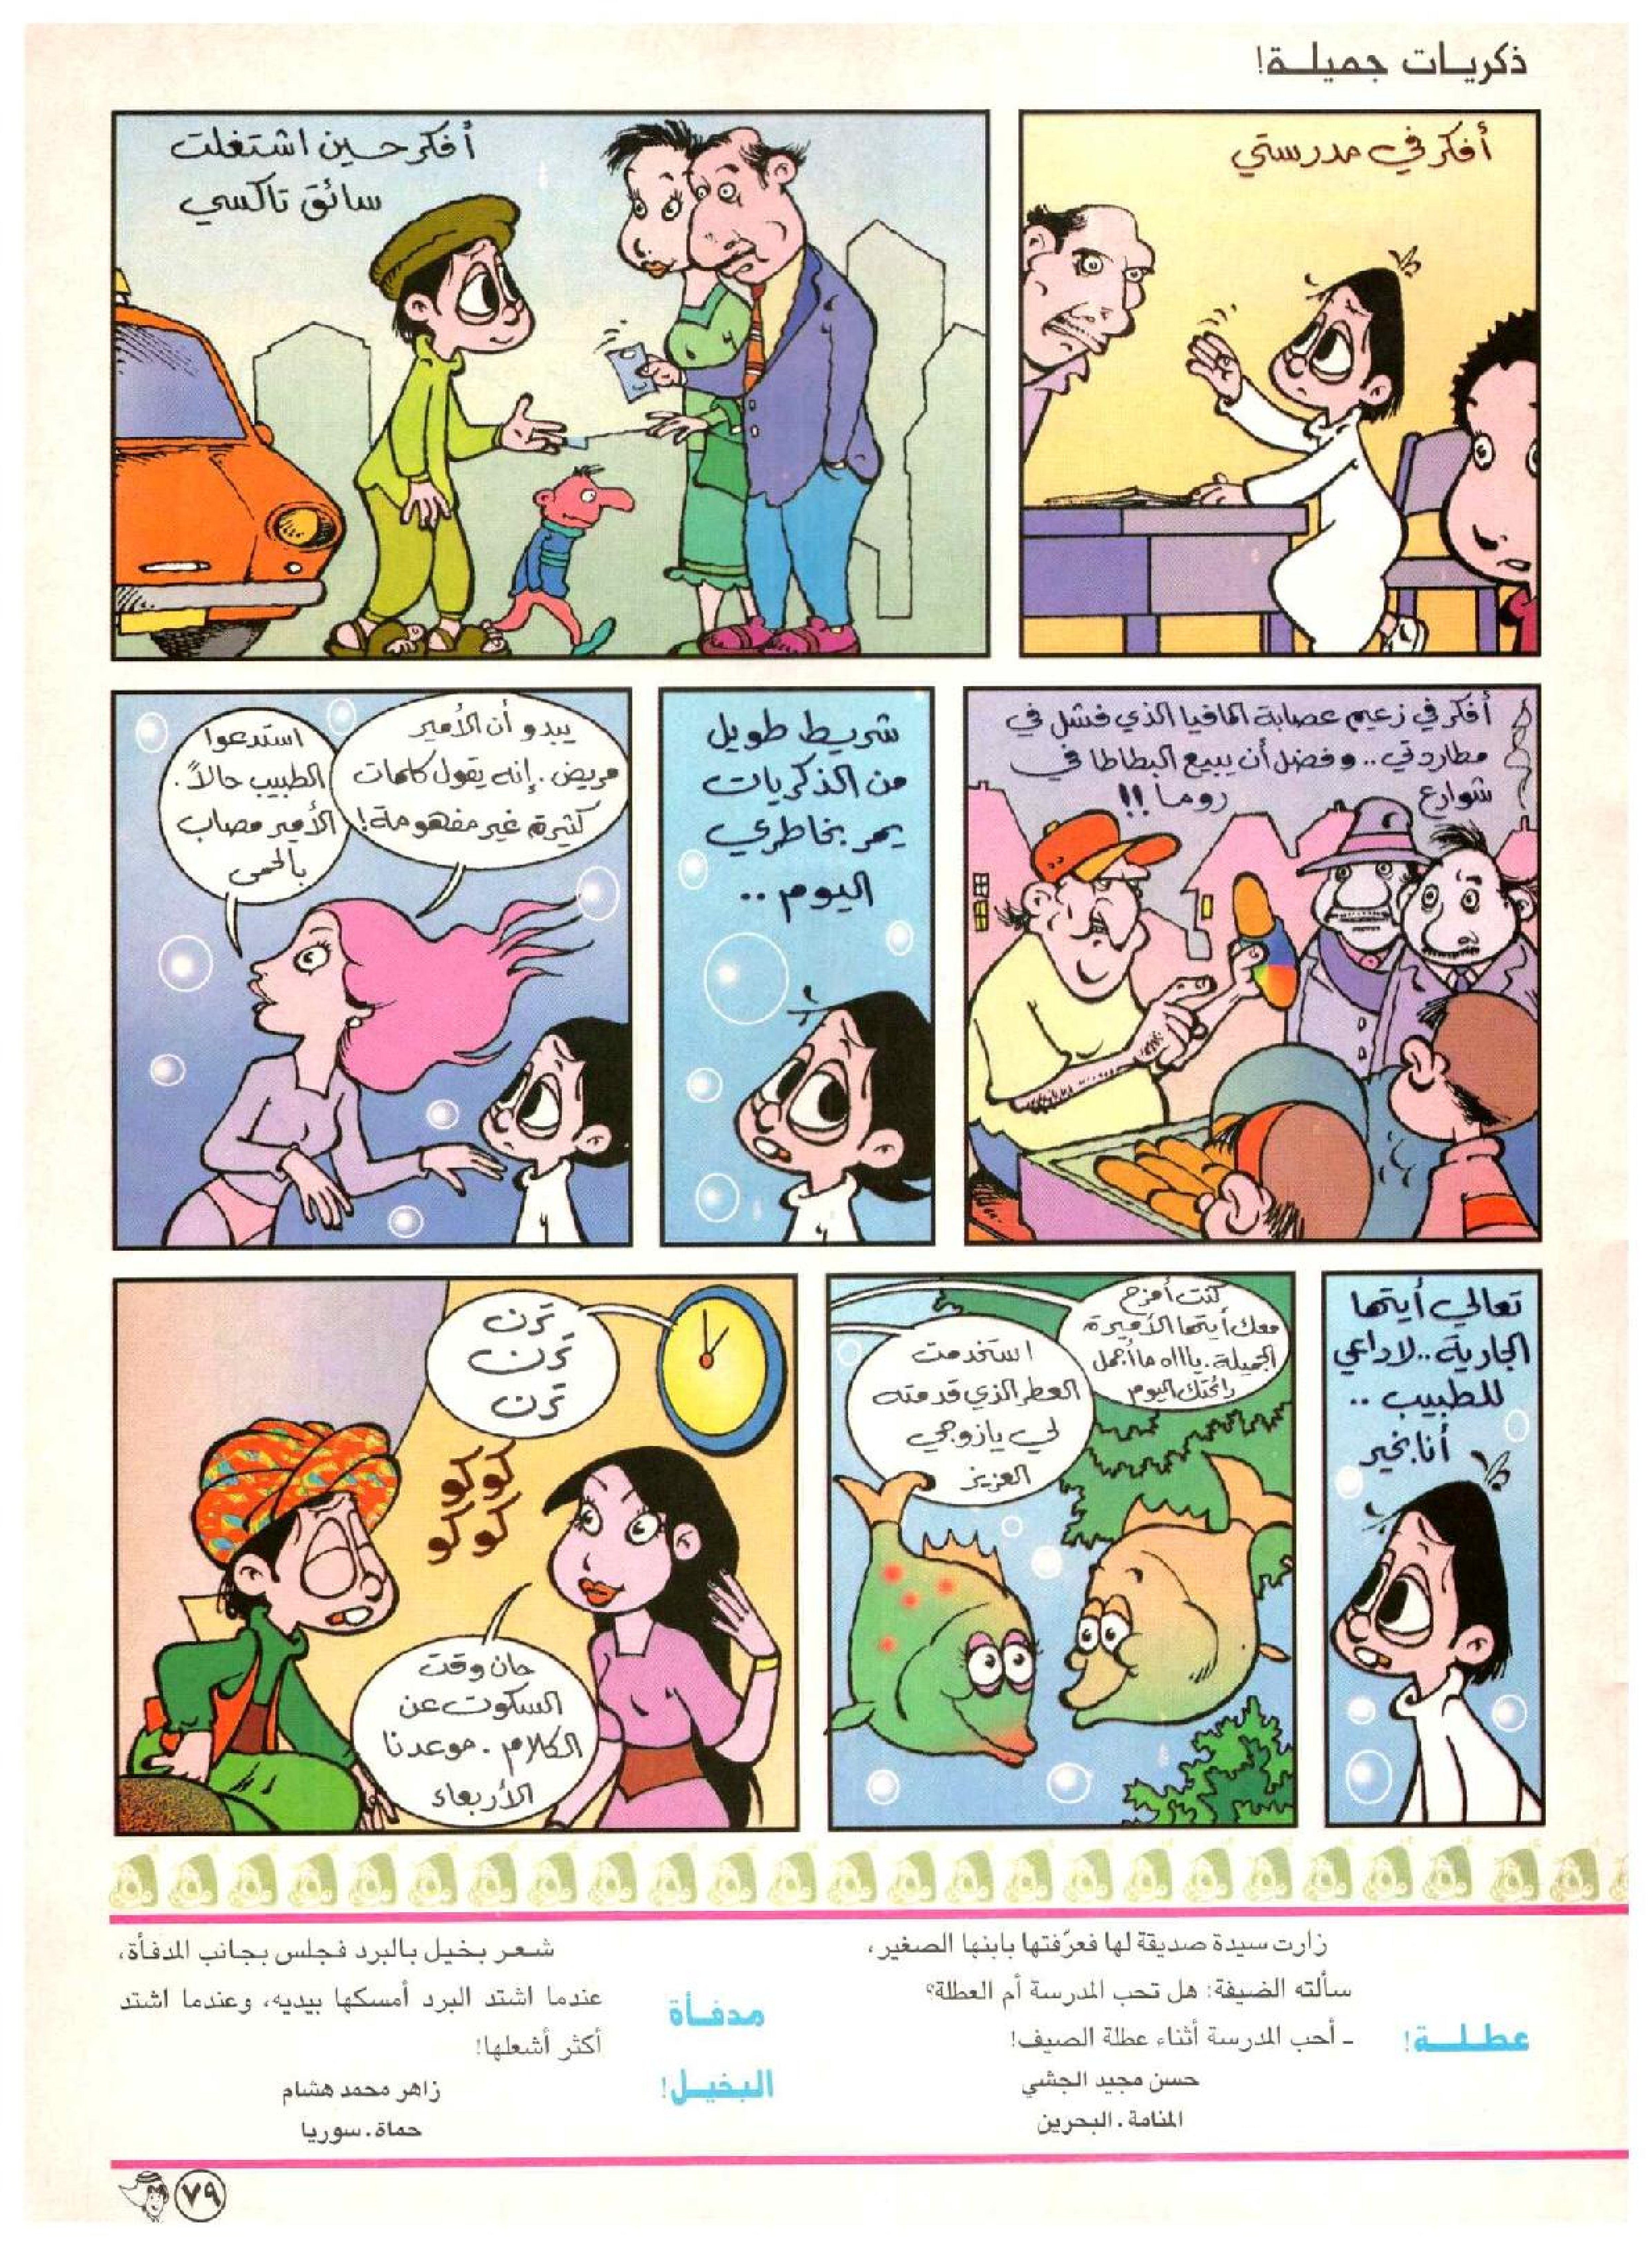 ذكريات جميلة!
أفكر في مدرستي
أفكر حين اشتغلت
سائق تاكسي
أفكر في زعيم عصابة المافيا الذي فشل في
مطاردتي.. وفضل أن يبيع البطاطا في
شوارع روما!!
شريط طويل
من الذكريات
يمر بخاطري
اليوم..
يبدو أن الأمير
مريض. إنه يقول كلمات
كثيرة غير مفهومة!
استدعوا
الطبيب حالاً.
الأمير مصاب
بالحمى
تعالي أيتها
الجارية.. لا داعي
للطبيب..
أنا بخير
كنت أمزح
معك أيتها الأميرة
الجميلة. ياااه ما أجمل
رائحتك اليوم
استخدمت
العطر الذي قدمته
لي يا زوجي
العزيز
ترن
ترن
ترن
كوكو
كوكو
حان وقت
السكوت عن
الكلام. موعدنا
الأربعاء
عطلة!
زارت سيدة صديقة لها فعرّفتها بابنها الصغير،
سألته الضيفة: هل تحب المدرسة أم العطلة؟
ـ أحب المدرسة أثناء عطلة الصيف!
حسن مجيد الجشي
المنامة. البحرين
مدفأة
البخيل!
شعر بخيل بالبرد فجلس بجانب المدفأة،
عندما اشتد البرد أمسكها بيديه، وعندما اشتد
أكثر أشعلها!
زاهر محمد هشام
حماة. سوريا
٧٩